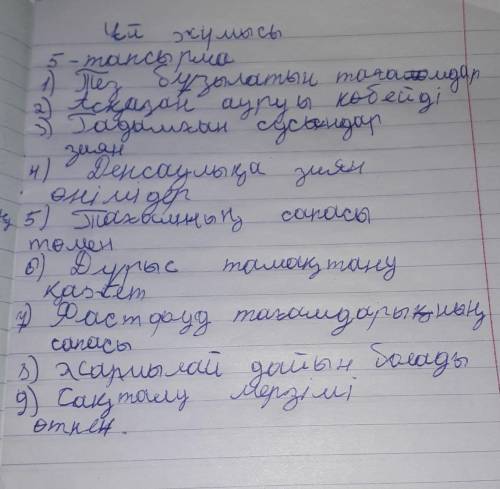 Үй жұмысы
5-тапсырма
1) Тез бұзылатын тағамдар
2) Асқазан ауруы көбейді
3) сусындар
зиян
4) Денсаулыққа зиян
өнімідер
5) Тағамның сапасы
төмен
6) Дұрыс тамақтану
қажет
7) Фастфуд тағамдарының
сапасы
8) Жармылай дайын болады
9) Сақталу мерзімі
өткен.